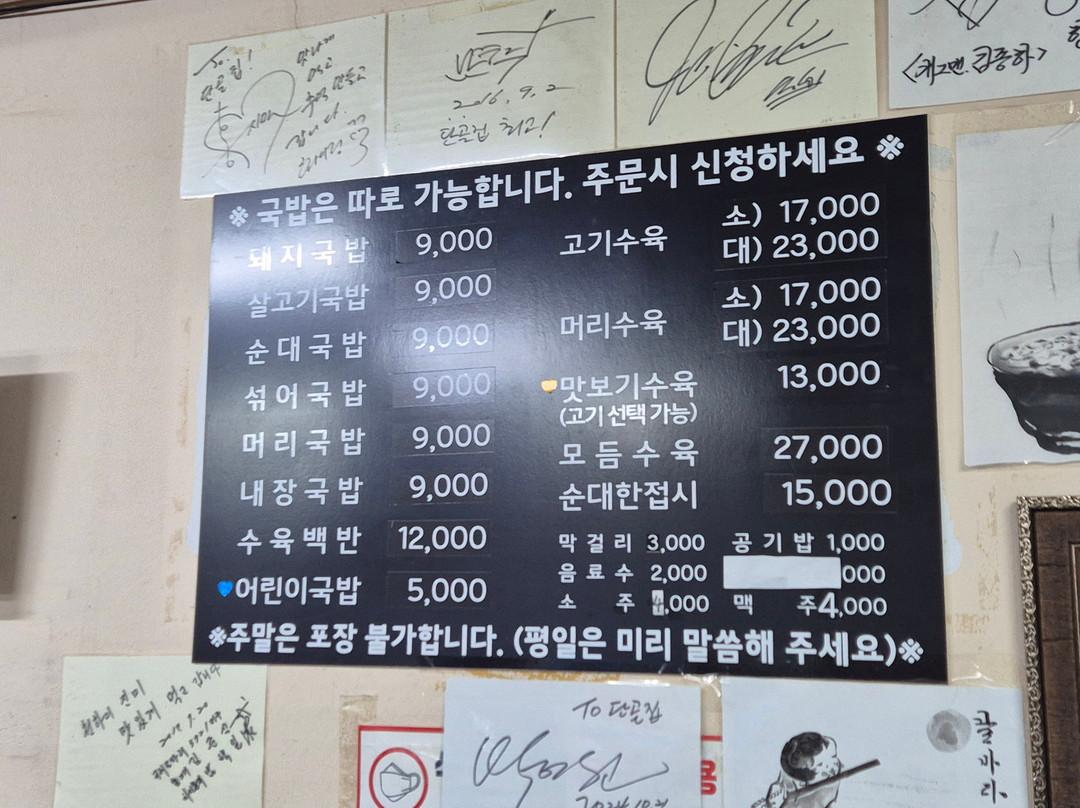 To.
단골집!
맛나게
먹고
추억 만들고
갑니다.
2016.9.2
단골집 최고!
<개그맨. 김종하>
※ 국밥은 따로 가능합니다. 주문시 신청하세요 ※
돼지국밥 9,000
살고기국밥 9,000
순대국밥 9,000
섞어국밥 9,000
머리국밥 9,000
내장국밥 9,000
수육백반 12,000
어린이국밥 5,000
고기수육 소) 17,000
대) 23,000
머리수육 소) 17,000
대) 23,000
맛보기수육 13,000
(고기 선택 가능)
모듬수육 27,000
순대한접시 15,000
막걸리 3,000 공기밥 1,000
음료수 2,000 000
소주 4,000 맥주 4,000
※주말은 포장 불가합니다. (평일은 미리 말씀해 주세요)※
맛있게 먹고 갑니다
To 단골집